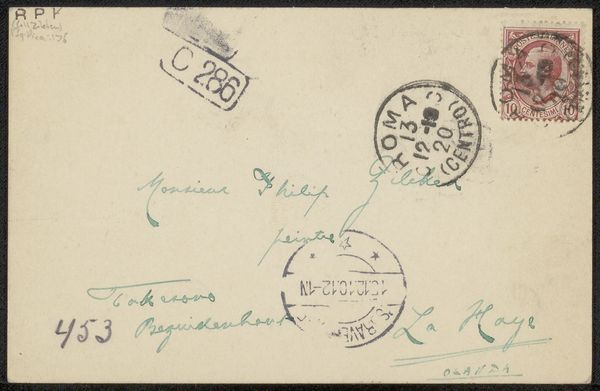 RPK
C 286
ROMA
13
12-10
20
(CENTRO)
POSTE ITALIANE
10 CENTESIMI 10
Monsieur Philip Zilcken
peintre
15.12.10.12-1N
'S GRAVEN
Bezuidenhout
453
La Haye
OLANDA